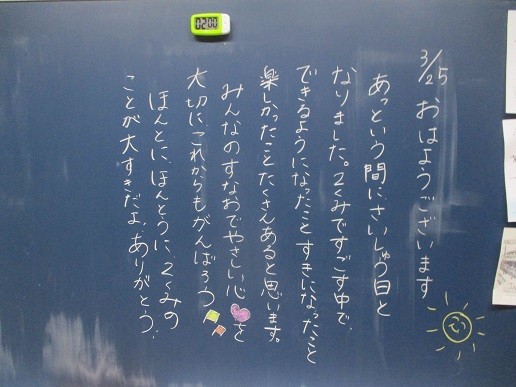 02:00
3/25 おはようございます
あっという間にさいしゅう日と
なりました。2くみですごす中で、
できるようになったことすきになったこと
楽しかったことたくさんあると思います。
みんなのすなおでやさしい心を
大切にこれからもがんばろう
ほんとに、ほんとうに、2くみの
ことが大すきだよ。ありがとう。